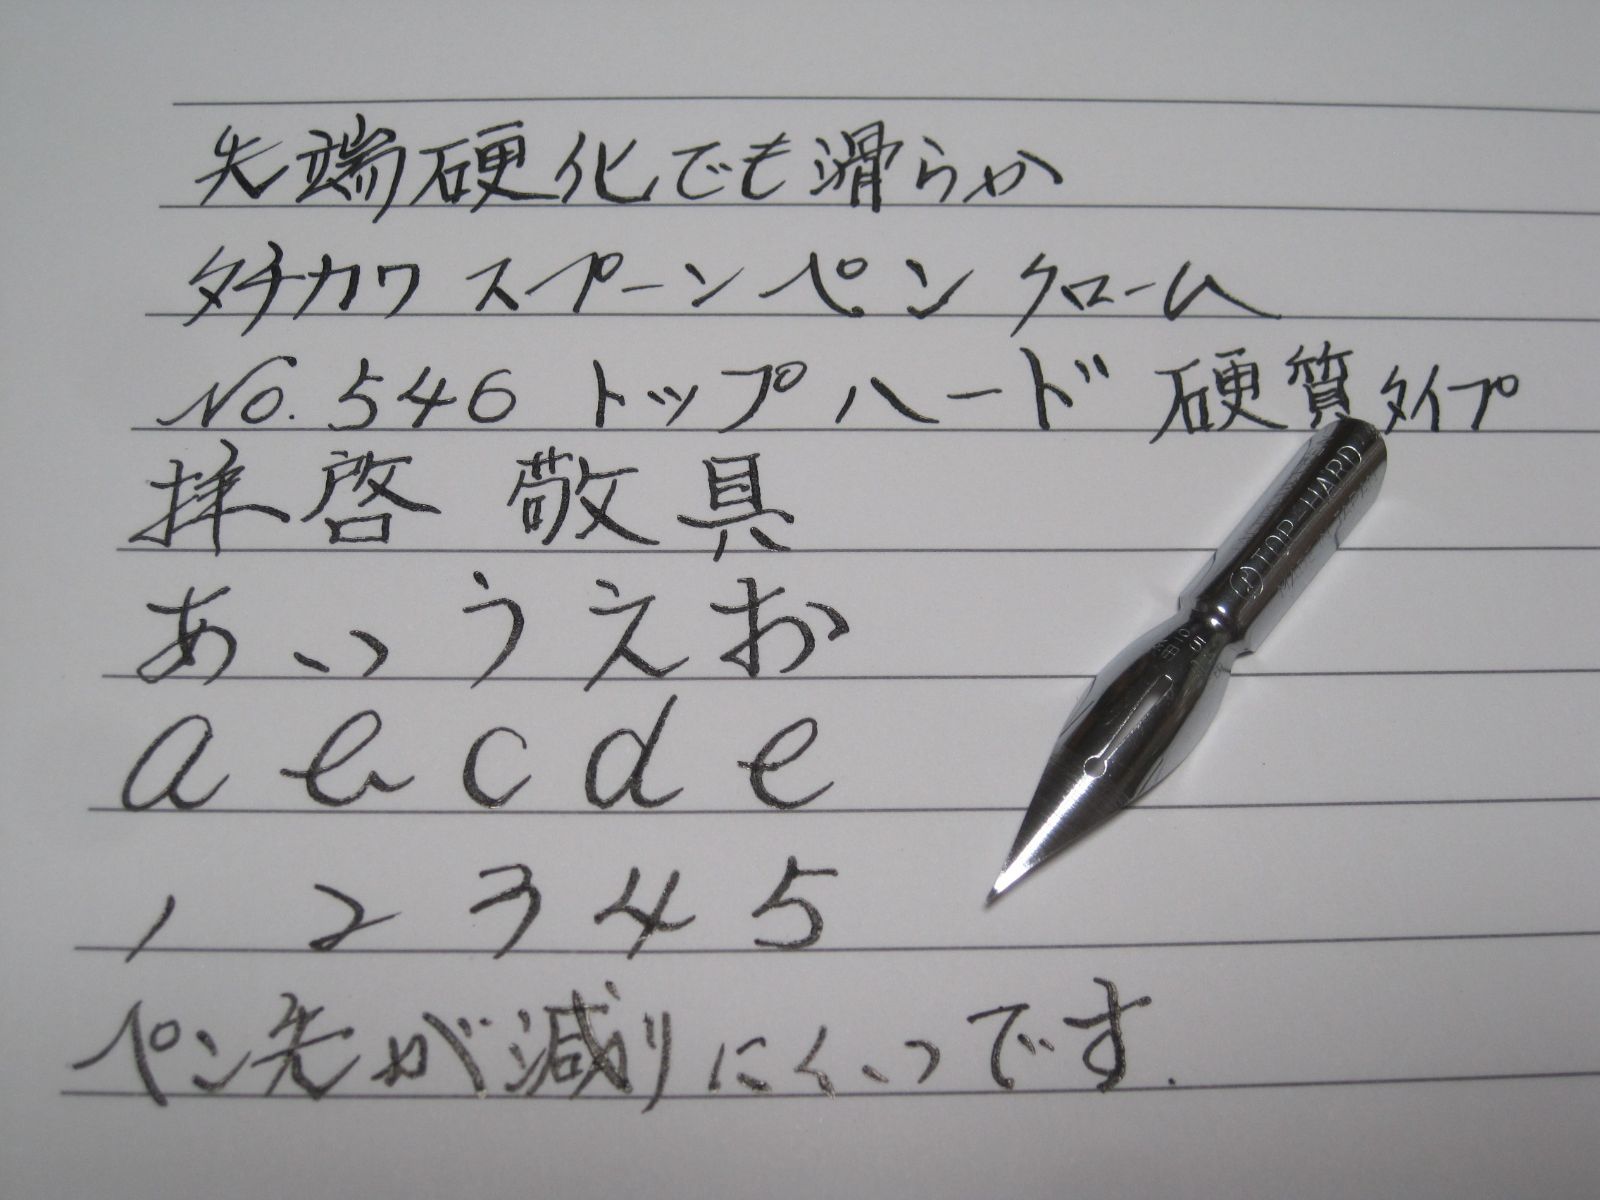 先端硬化でも滑らか
タチカワ スプーンペン クローム
No.546 トップハード 硬質タイプ
拝啓 敬具
あ い う え お
a b c d e
1 2 3 4 5
ペン先が減りにくいです.
TOP-HARD